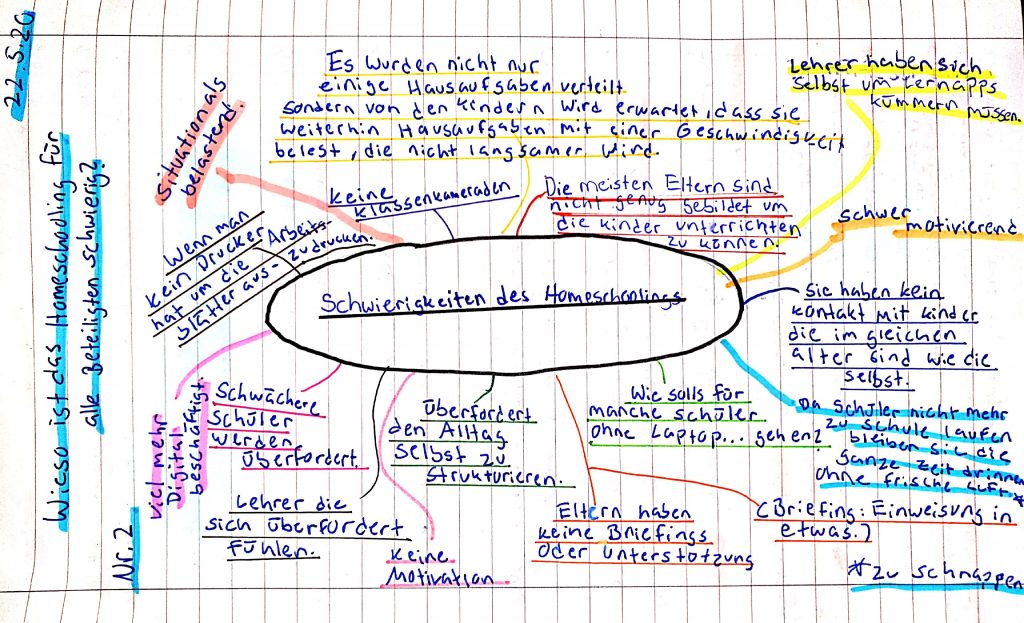 22.5.20
Wieso ist das Homeschooling für
alle beteiligten schwierig?
Nr. 2
Schwierigkeiten des Homeschoolings
Situation als
belastend.
Es wurden nicht nur
einige Hausaufgaben verteilt
sondern von den Kindern wird erwartet, dass sie
weiterhin Hausaufgaben mit einer Geschwindigkeit
belest, die nicht langsamer wird.
Lehrer haben sich
selbst um Lernapps
kümmern müssen.
keine
Klassenkameraden
Die meisten Eltern sind
nicht genug gebildet um
die kinder unterrichten
zu können.
schwer
motivierend
Wenn man
kein Drucker
hat um die Arbeits-
blätter aus- zudrucken.
Sie haben kein
kontakt mit kinder
die im gleichen
alter sind wie die
selbst.
Da Schüler nicht mehr
zu schule laufen
bleiben sie die
ganze zeit drinnen
ohne frische Luft *
* zu schnappen
viel mehr
Digital
beschäftigt.
Schwächere
Schüler
werden
überfordert.
Lehrer die
sich überfordert
fühlen.
keine
Motivation
überfordert
den Alltag
selbst zu
strukturieren.
Wie solls für
manche schüler
ohne Laptop... gehen?
Eltern haben
keine Briefings
oder unterstützung
(Briefing: Einweisung in
etwas.)